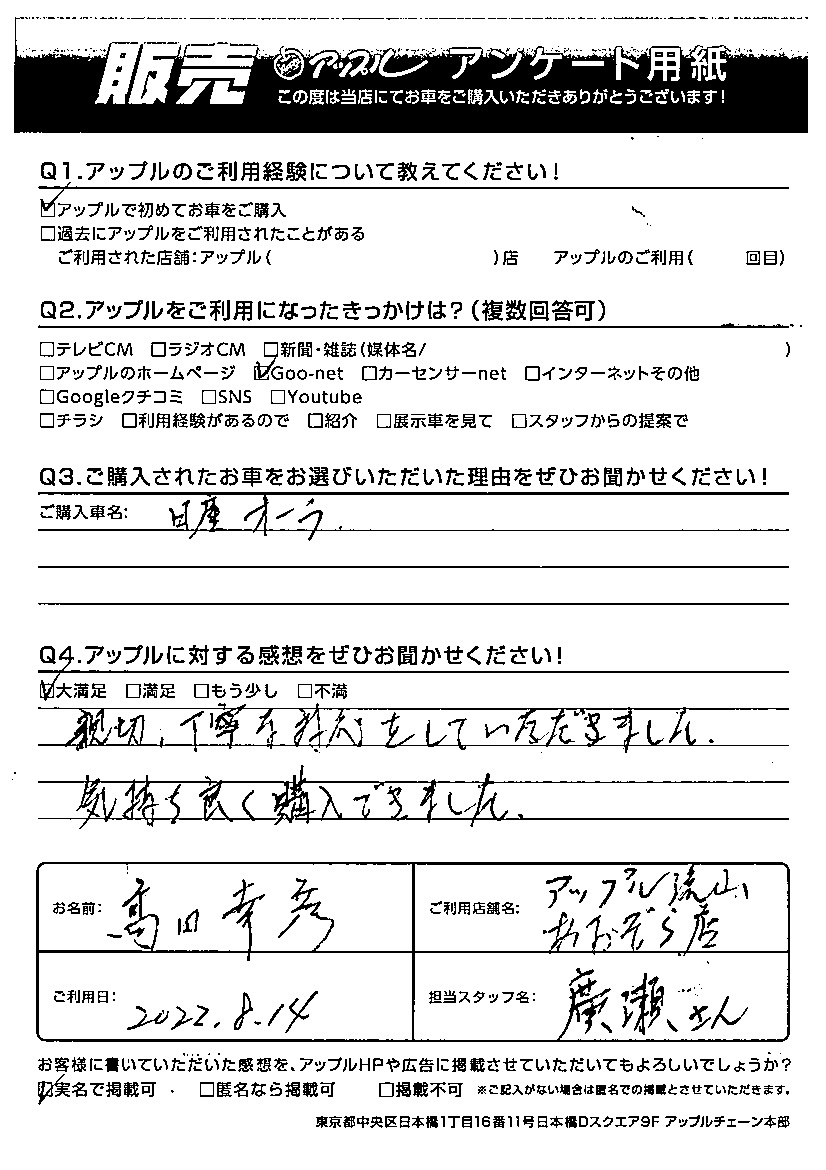 販売 アップル アンケート用紙
この度は当店にてお車をご購入いただきありがとうございます!
Q1.アップルのご利用経験について教えてください!
☑アップルで初めてお車をご購入
□過去にアップルをご利用されたことがある
ご利用された店舗:アップル( )店 アップルのご利用( 回目)
Q2.アップルをご利用になったきっかけは?(複数回答可)
□テレビCM □ラジオCM □新聞・雑誌(媒体名/ )
□アップルのホームページ ☑Goo-net □カーセンサーnet □インターネットその他
□Googleクチコミ □SNS □Youtube
□チラシ □利用経験があるので □紹介 □展示車を見て □スタッフからの提案で
Q3.ご購入されたお車をお選びいただいた理由をぜひお聞かせください!
ご購入車名: 日産 オーラ.
Q4.アップルに対する感想をぜひお聞かせください!
☑大満足 □満足 □もう少し □不満
親切、丁寧な対応をしていただきました.
気持ち良く購入できました.
お名前: 高田 幸彦
ご利用店舗名: アップル流山
おおぞら店
ご利用日: 2022.8.14
担当スタッフ名: 廣瀬さん
お客様に書いていただいた感想を、アップルHPや広告に掲載させていただいてもよろしいでしょうか?
☑実名で掲載可 □匿名なら掲載可 □掲載不可 ※ご記入がない場合は匿名での掲載とさせていただきます。
東京都中央区日本橋1丁目16番11号日本橋Dスクエア9F アップルチェーン本部